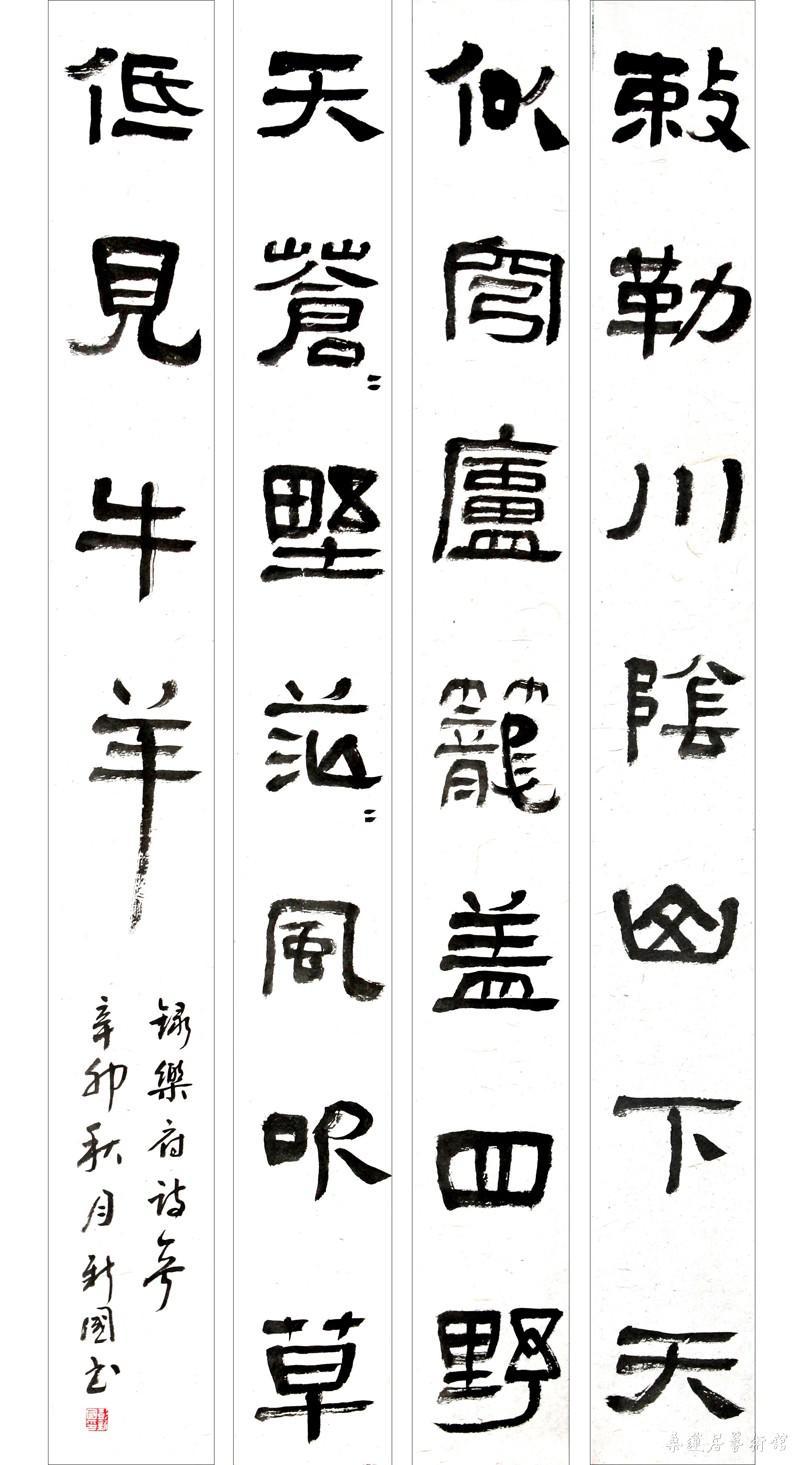 敕勒川陰山下天
似穹廬籠盖四野
天蒼〻野茫〻風吹草
低見牛羊
録樂府詩
辛卯秋月新國書
桑蓮居藝術館